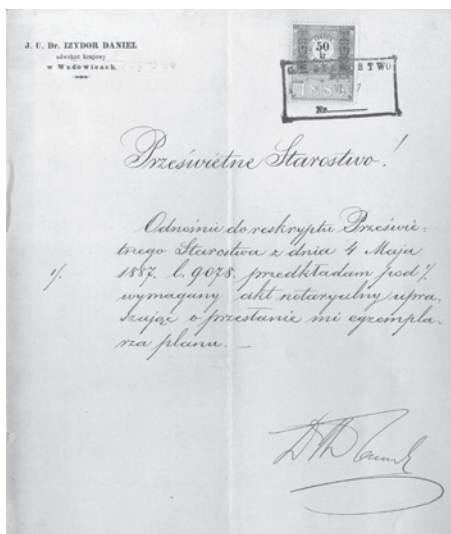 J. U. Dr. IZYDOR DANIEL
adwokat krajowy
w Wadowicach
50
kr
STWO
188
7
Nr.
Prześwietne Starostwo!
Odnośnie do reskryptu Prześwie-
tnego Starostwa z dnia 4 Maja
1887 l. 9078. przedkładam pod 1/.
1/.
wymagany akt notaryalny upra-
szając o przesłanie mi egzempla-
rza planu. —